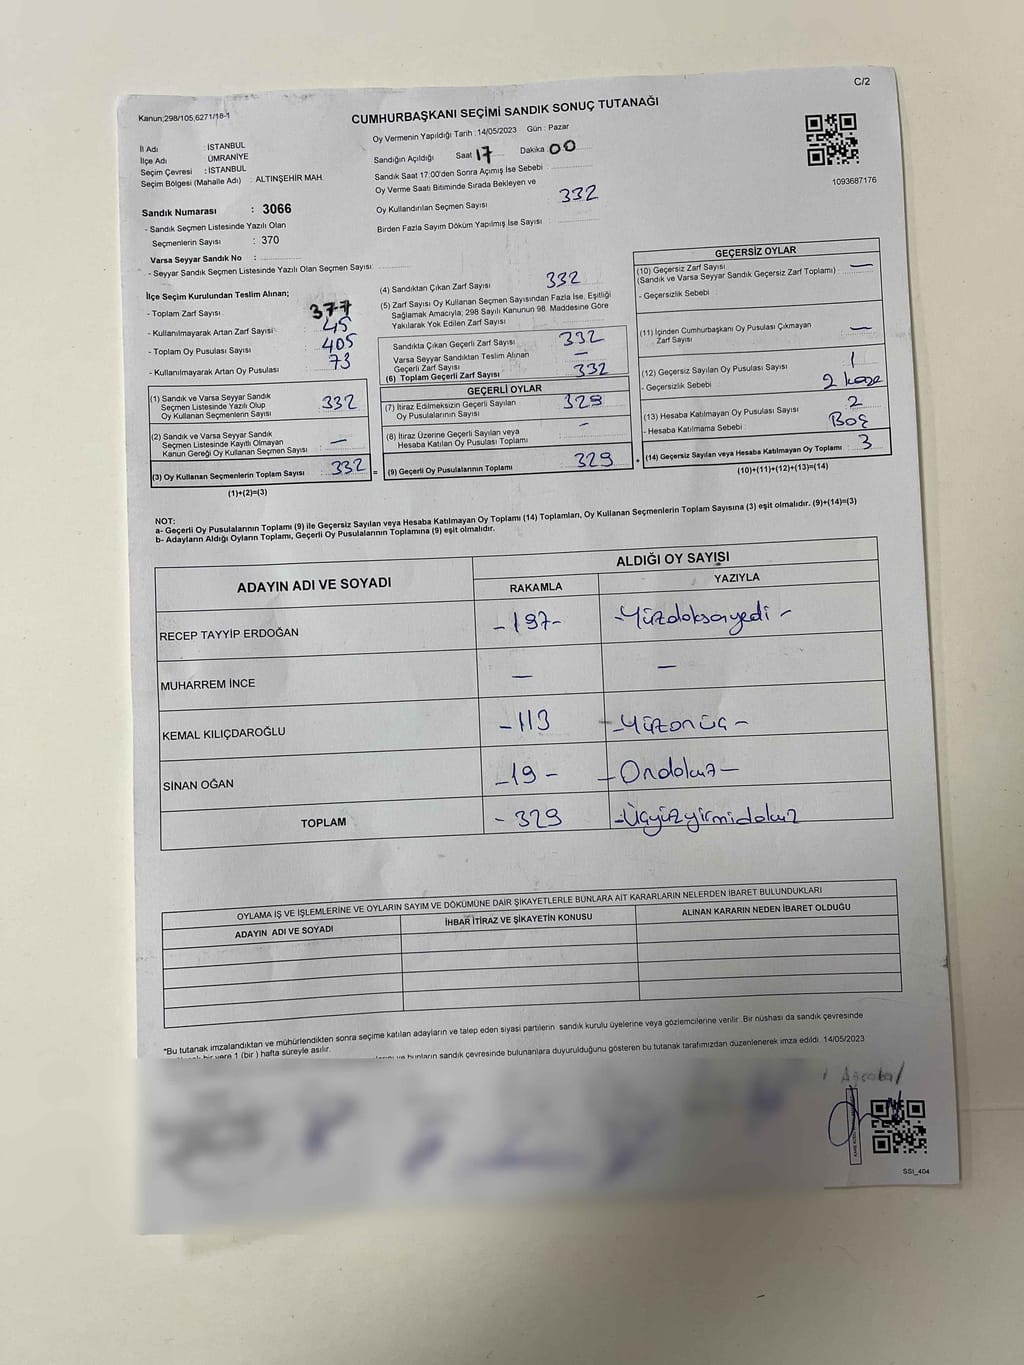 C/2
Kanun;298/105,6271/18-1
CUMHURBAŞKANI SEÇİMİ SANDIK SONUÇ TUTANAĞI
İl Adı : İSTANBUL
İlçe Adı : ÜMRANİYE
Seçim Çevresi : İSTANBUL
Seçim Bölgesi (Mahalle Adı) : ALTINŞEHİR MAH.
Oy Vermenin Yapıldığı Tarih : 14/05/2023 Gün : Pazar
Sandığın Açıldığı Saat 17 Dakika 00
Sandık Saat 17:00'den Sonra Açımış İse Sebebi :
Oy Verme Saati Bitiminde Sırada Bekleyen ve
Oy Kullandırılan Seçmen Sayısı : 332
Birden Fazla Sayım Döküm Yapılmış İse Sayısı :
1093687176
Sandık Numarası : 3066
- Sandık Seçmen Listesinde Yazılı Olan
Seçmenlerin Sayısı : 370
Varsa Seyyar Sandık No :
- Seyyar Sandık Seçmen Listesinde Yazılı Olan Seçmen Sayısı:
İlçe Seçim Kurulundan Teslim Alınan;
- Toplam Zarf Sayısı : 377
- Kullanılmayarak Artan Zarf Sayısı : 45
- Toplam Oy Pusulası Sayısı : 405
- Kullanılmayarak Artan Oy Pusulası : 73
(1) Sandık ve Varsa Seyyar Sandık
Seçmen Listesinde Yazılı Olup
Oy Kullanan Seçmenlerin Sayısı : 332
(2) Sandık ve Varsa Seyyar Sandık
Seçmen Listesinde Kayıtlı Olmayan
Kanun Gereği Oy Kullanan Seçmen Sayısı : —
(3) Oy Kullanan Seçmenlerin Toplam Sayısı : 332 =
(1)+(2)=(3)
(4) Sandıktan Çıkan Zarf Sayısı : 332
(5) Zarf Sayısı Oy Kullanan Seçmen Sayısından Fazla İse, Eşitliği
Sağlamak Amacıyla; 298 Sayılı Kanunun 98. Maddesine Göre
Yakılarak Yok Edilen Zarf Sayısı :
Sandıkta Çıkan Geçerli Zarf Sayısı : 332
Varsa Seyyar Sandıktan Teslim Alınan
Geçerli Zarf Sayısı : —
(6) Toplam Geçerli Zarf Sayısı : 332
GEÇERLİ OYLAR
(7) İtiraz Edilmeksizin Geçerli Sayılan
Oy Pusulalarının Sayısı : 329
(8) İtiraz Üzerine Geçerli Sayılan veya
Hesaba Katılan Oy Pusulası Toplamı : —
(9) Geçerli Oy Pusulalarının Toplamı : 329 +
GEÇERSİZ OYLAR
(10) Geçersiz Zarf Sayısı
(Sandık ve Varsa Seyyar Sandık Geçersiz Zarf Toplamı) : —
- Geçersizlik Sebebi :
(11) İçinden Cumhurbaşkanı Oy Pusulası Çıkmayan
Zarf Sayısı : —
(12) Geçersiz Sayılan Oy Pusulası Sayısı : 1
- Geçersizlik Sebebi : 2 kaşe
(13) Hesaba Katılmayan Oy Pusulası Sayısı : 2
- Hesaba Katılmama Sebebi : Boş
(14) Geçersiz Sayılan veya Hesaba Katılmayan Oy Toplamı : 3
(10)+(11)+(12)+(13)=(14)
NOT:
a- Geçerli Oy Pusulalarının Toplamı (9) ile Geçersiz Sayılan veya Hesaba Katılmayan Oy Toplamı (14) Toplamları, Oy Kullanan Seçmenlerin Toplam Sayısına (3) eşit olmalıdır. (9)+(14)=(3)
b- Adayların Aldığı Oyların Toplamı, Geçerli Oy Pusulalarının Toplamına (9) eşit olmalıdır.
ADAYIN ADI VE SOYADI
ALDIĞI OY SAYISI
RAKAMLA YAZIYLA
RECEP TAYYİP ERDOĞAN -197- -Yüzdoksanyedi-
MUHARREM İNCE — —
KEMAL KILIÇDAROĞLU -113 -Yüzonüç-
SİNAN OĞAN -19- -Ondokuz-
TOPLAM -329 -Üçyüzyirmidokuz
OYLAMA İŞ VE İŞLEMLERİNE VE OYLARIN SAYIM VE DÖKÜMÜNE DAİR ŞİKAYETLERLE BUNLARA AİT KARARLARIN NELERDEN İBARET BULUNDUKLARI
ADAYIN ADI VE SOYADI İHBAR İTİRAZ VE ŞİKAYETİN KONUSU ALINAN KARARIN NEDEN İBARET OLDUĞU
*Bu tutanak imzalandıktan ve mühürlendikten sonra seçime katılan adayların ve talep eden siyasi partilerin sandık kurulu üyelerine veya gözlemcilerine verilir. Bir nüshası da sandık çevresinde
bir yere 1 (bir) hafta süreyle asılır.
ve bunların sandık çevresinde bulunanlara duyurulduğunu gösteren bu tutanak tarafımızdan düzenlenerek imza edildi. 14/05/2023
SSI_404